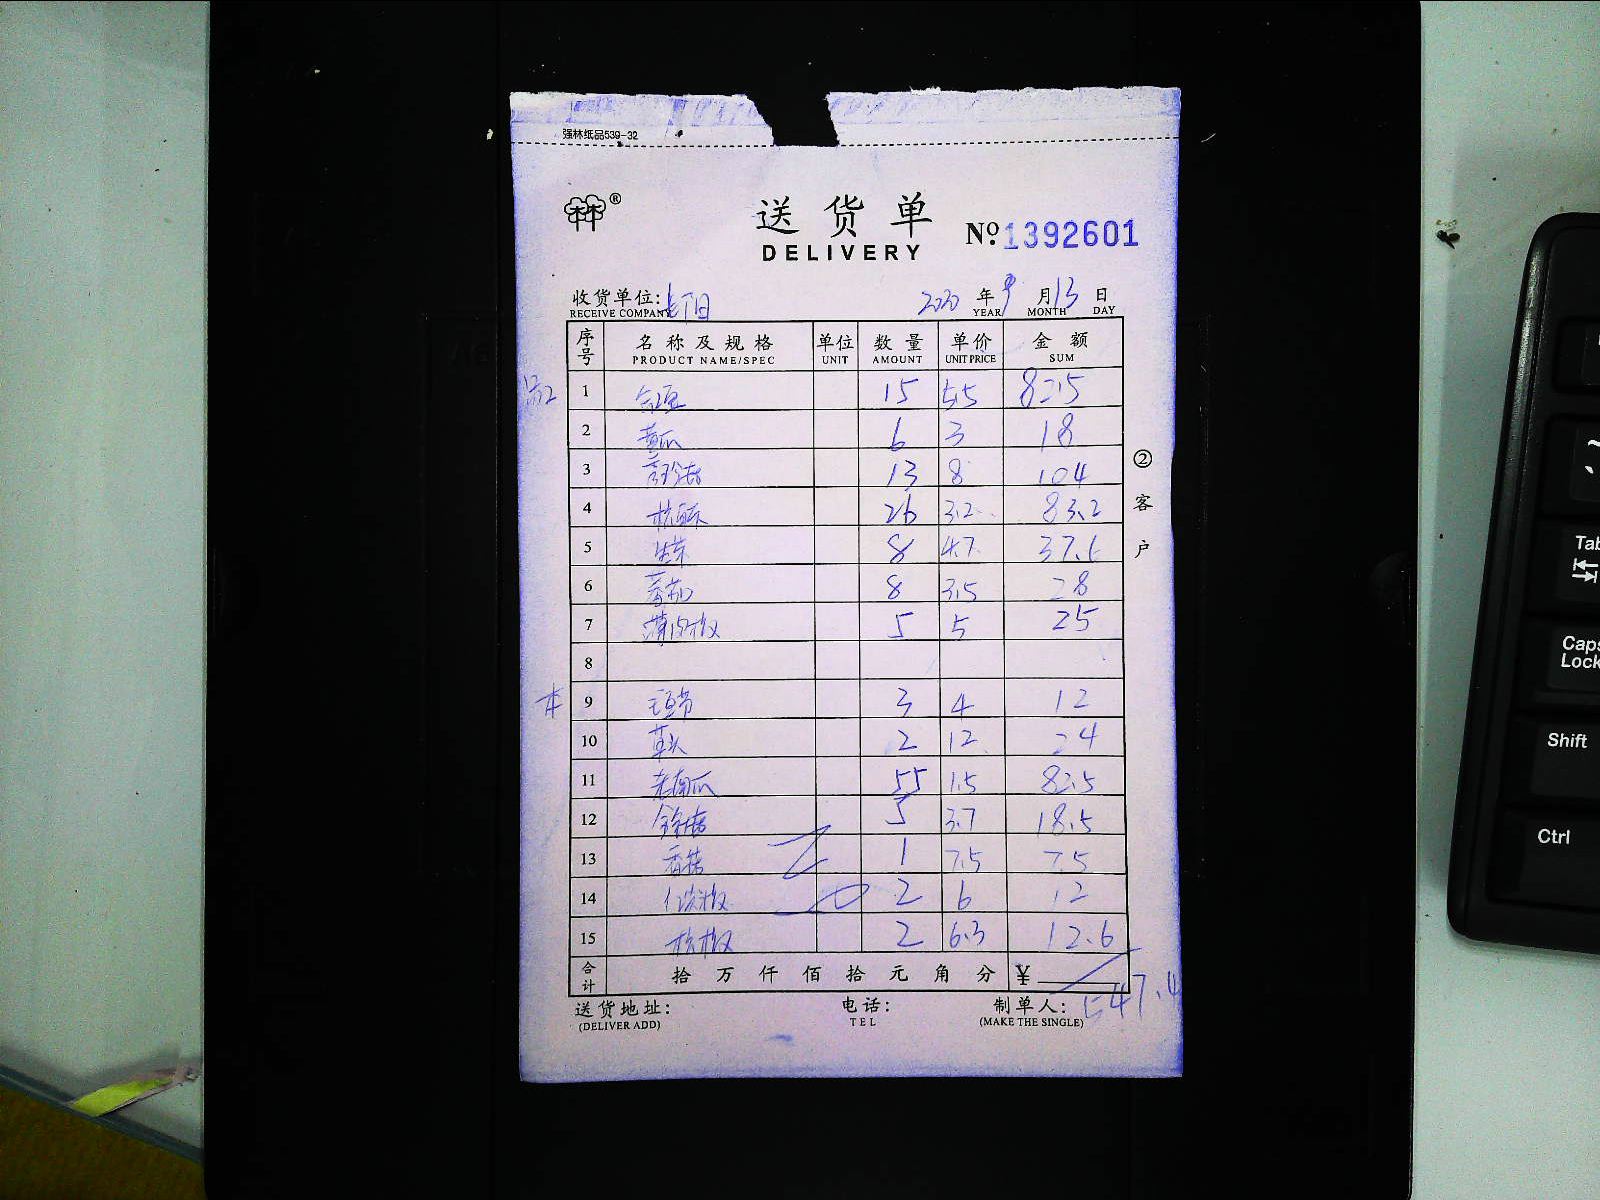 强林纸品539-32
林林®
送货单 No.1392601
DELIVERY
收货单位: 2020 年 9 月 13 日
RECEIVE COMPANY YEAR MONTH DAY
序号 名称及规格 单位 数量 单价 金额
PRODUCT NAME/SPEC UNIT AMOUNT UNIT PRICE SUM
1 15 5.5 82.5
2 黄瓜 6 3 18
3 13 8 104
4 26 3.2 83.2
5 生菜 8 4.7 37.6
6 番茄 8 3.5 28
7 薄皮椒 5 5 25
8
本 9 毛豆节 3 4 12
10 草头 2 12 24
11 老南瓜 55 1.5 82.5
12 金针菇 5 3.7 18.5
13 香菇 1 7.5 7.5
14 2 6 12
15 杭椒 2 6.3 12.6
合计 拾 万 仟 佰 拾 元 角 分 ¥ 547.4
送货地址: 电话: 制单人:
(DELIVER ADD) TEL (MAKE THE SINGLE)
② 客户
Tab
Caps Lock
Shift
Ctrl